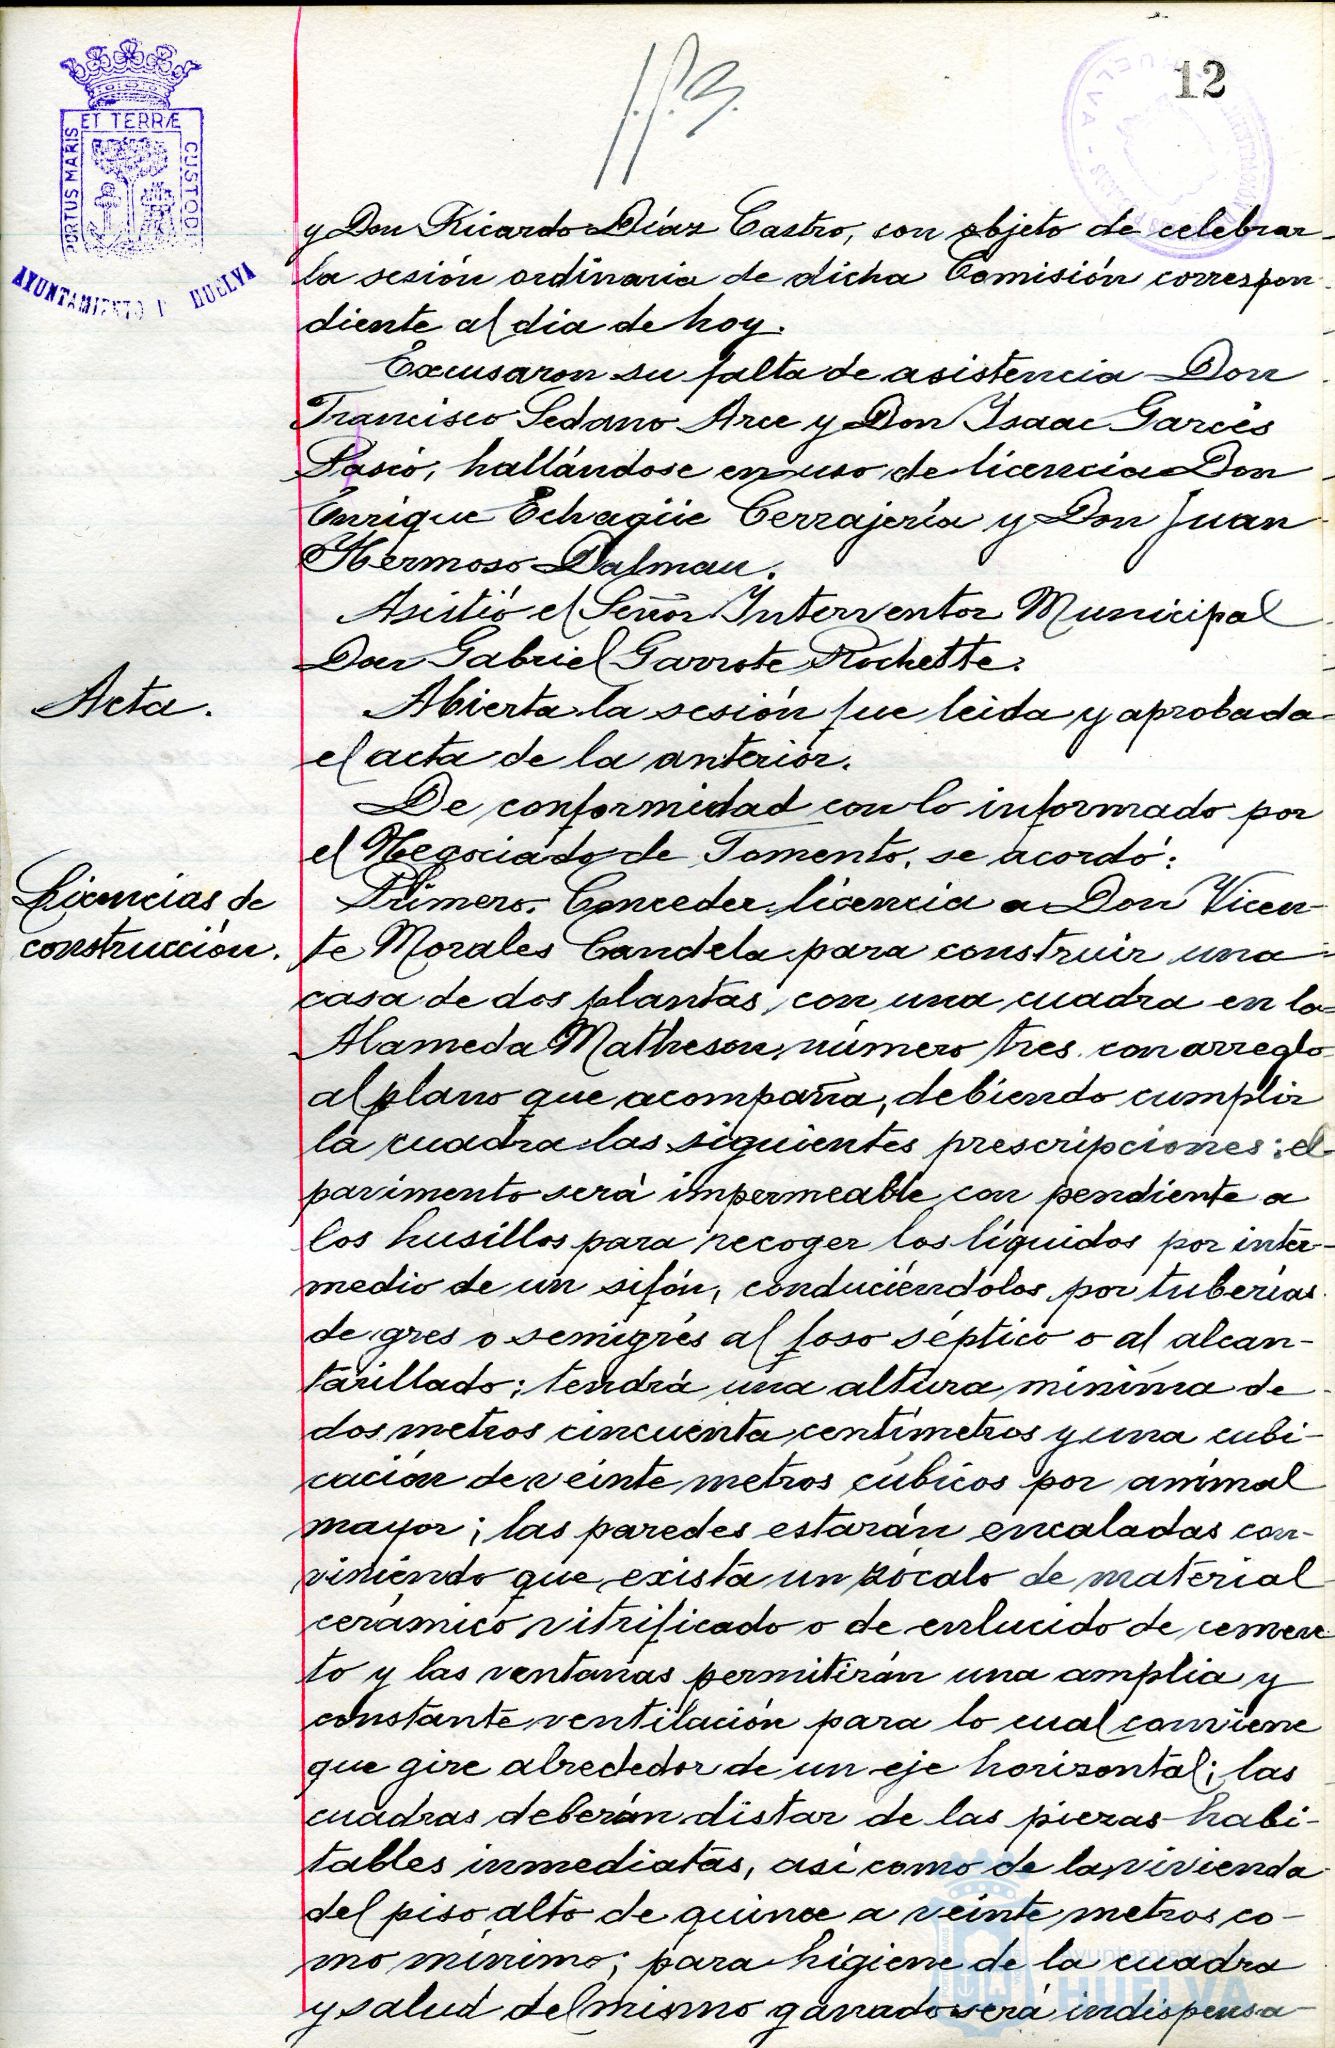 12
PORTUS MARIS
ET TERRÆ
CUSTODI
AYUNTAMIENTO D HUELVA
HUELVA
y Don Ricardo Díaz Castro, con objeto de celebrar
la sesión ordinaria de dicha Comisión correspon-
diente al dia de hoy.
Excusaron su falta de asistencia Don
Francisco Sedano Arce y Don Isaac Garcés
Pascó, hallándose en uso de licencia Don
Enrique Echagüe Cerrajería y Don Juan
Hermoso Dalmau.
Asistió el Señor Interventor Municipal
Don Gabriel Garrote Rochette.
Acta.
Abierta la sesión fue leida y aprobada
el acta de la anterior.
De conformidad con lo informado por
el Negociado de Fomento, se acordó:
Licencias de
construcción.
Primero. Conceder licencia a Don Vicen-
te Morales Candela para construir una
casa de dos plantas, con una cuadra en la
Alameda Matheson, número tres, con arreglo
al plano que acompaña, debiendo cumplir
la cuadra las siguientes prescripciones: el
pavimento será impermeable con pendiente a
los husillos para recoger los líquidos por inter-
medio de un sifón, conduciéndolos por tuberías
de gres o semigrés al foso séptico o al alcan-
tarillado; tendrá una altura mínima de
dos metros cincuenta centímetros y una cubi-
cación de veinte metros cúbicos por animal
mayor; las paredes estarán encaladas con-
viniendo que exista un zócalo de material
cerámico vitrificado o de enlucido de cemen-
to y las ventanas permitirán una amplia y
constante ventilación para lo cual conviene
que gire alrededor de un eje horizontal; las
cuadras deberán distar de las piezas habi-
tables inmediatas, así como de la vivienda
del piso alto de quince a veinte metros co-
mo mínimo; para higiene de la cuadra
y salud del mismo ganado será indispensa-
Ayuntamiento de
HUELVA